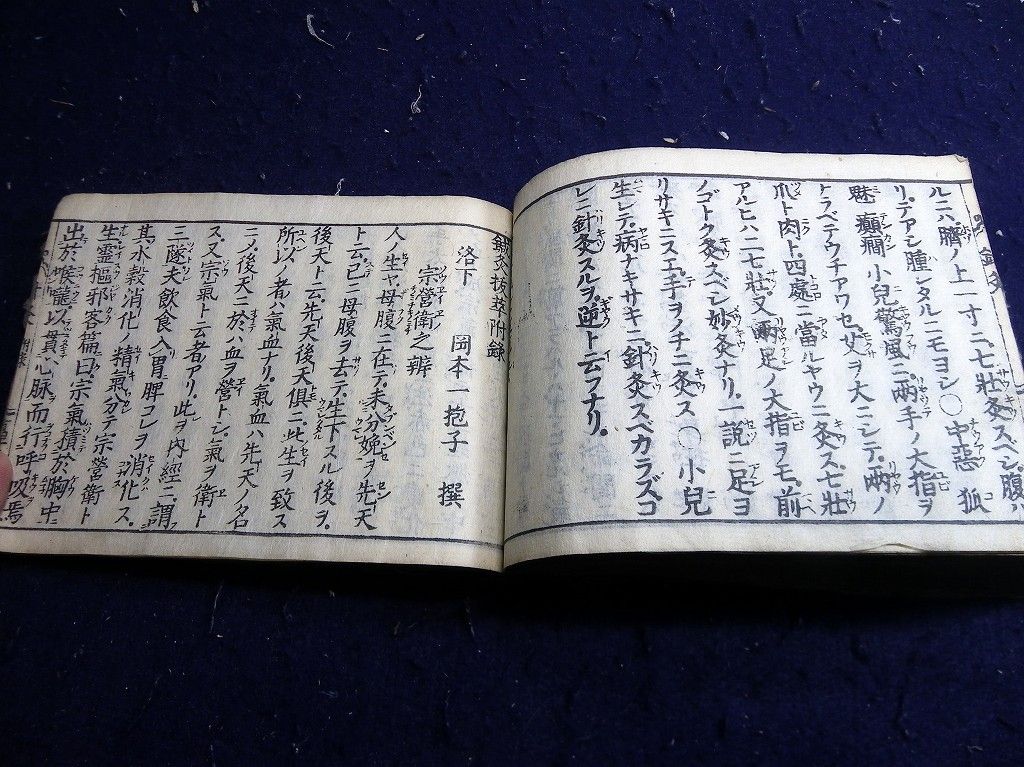 ルニハ臍ノ上一寸ニ七壮灸スベシ腹ハ
リテアシ腫シタルニモヨシ〇中惡 狐
魅 癲癇 小兒驚風ニ兩手ノ大指ヲ
トラベテウチアワセ艾ヲ大ニシテ兩ノ
爪ト肉ト四處ニ當ルヤウニ灸ス七壮
アルヒハ二七壮又兩足ノ大指ヲモ前
ノゴトク灸スベシ妙灸ナリ一説ニ足ヨ
リサキニスエ手ヲノチニ灸ス〇小兒
生レテ病ナキサキニ針灸スベカラズコ
レニ針灸スルヲ逆ト云フナリ
鍼灸抜萃附録
洛下 岡本一抱子 撰
宗營衛之辨
人ノ生ヤ母腹ニ在テ未分娩ヲ先天
ト云已ニ母腹ヲ去テ生下スル後ヲ
後天ト云先天後天俱ニ此生ヲ致ス
所以ノ者ハ氣血ナリ氣血ハ先天ノ名
ニノ後天ニ於ハ血ヲ營トシ氣ヲ衛ト
ス又宗氣ト云者アリ此ヲ内經ニ謂
三隧夫飲食入胃脾コレヲ消化ス
其水穀消化ノ精氣分テ宗營衛ト
生靈樞邪客篇曰宗氣積於胸中
出於喉嚨以貫心脉而行呼吸焉